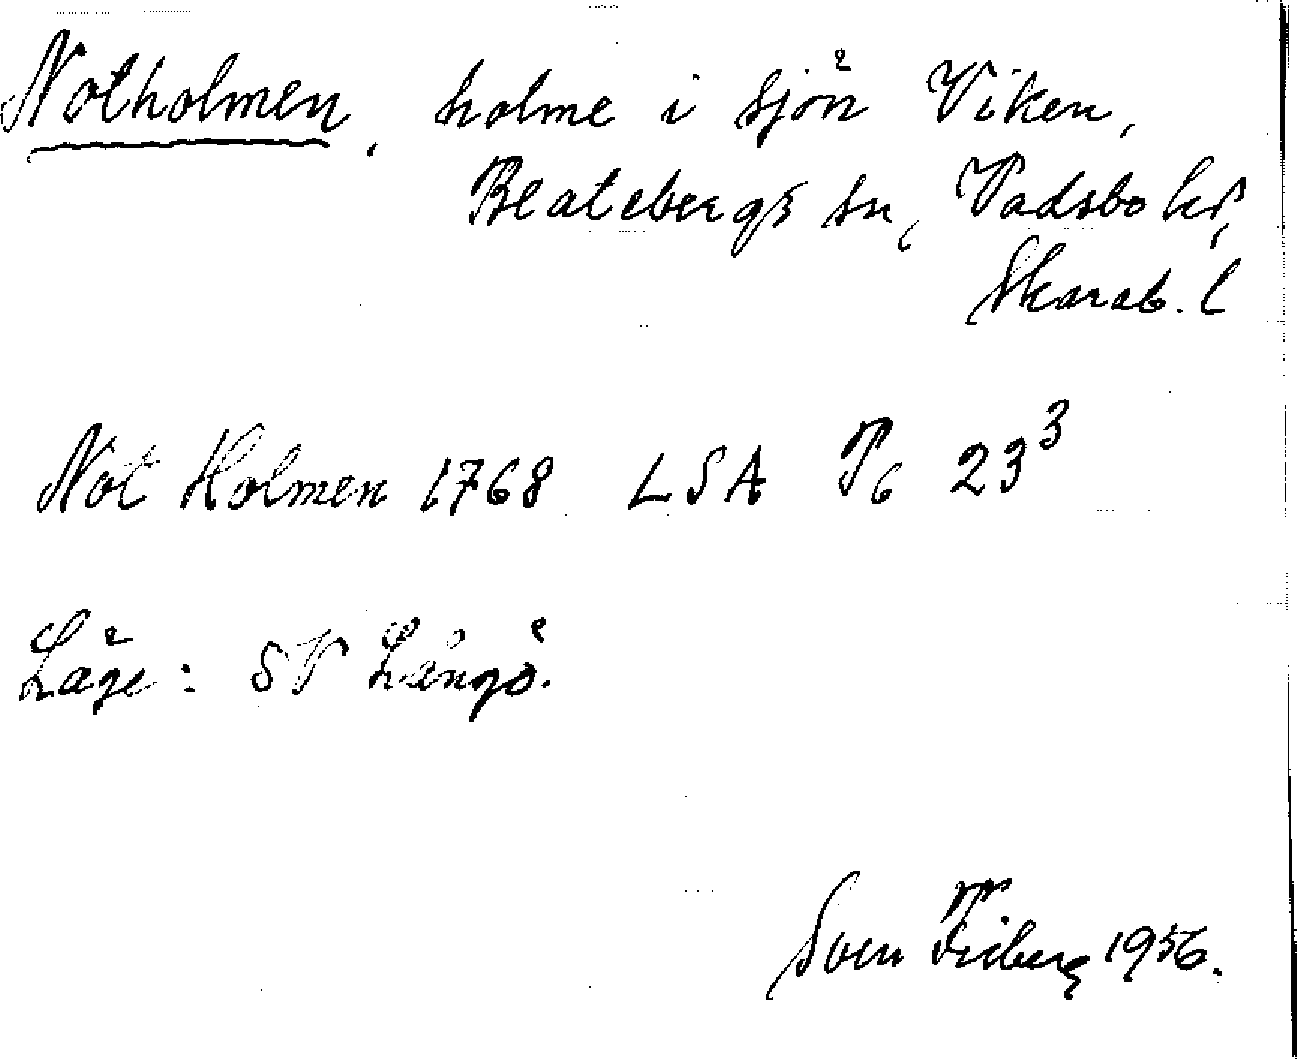 Notholmen, holme i sjön Viken,
Beatebergs sn, Vadsbo hd,
Skarab. l
Not Holmen 1768 LSA P6 23³
Läge: SV Långö.
Sven Friberg 1956.